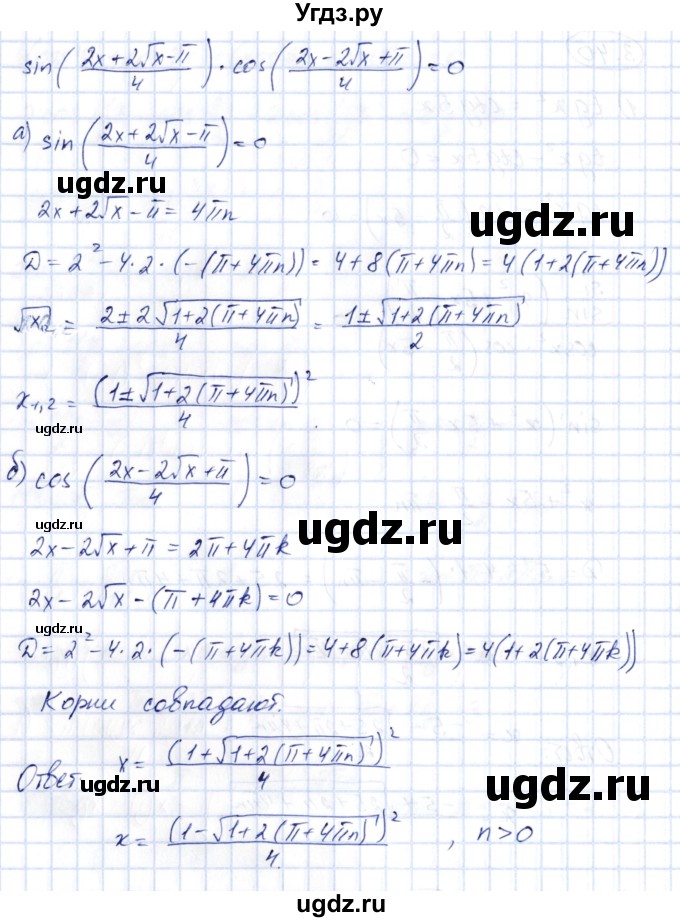 Угдз.ру
sin((2x+2√x-π)/4)·cos((2x-2√x+π)/4)=0
а) sin((2x+2√x-π)/4)=0
ugdz.ru
ugdz.ru
2x+2√x-π=4πn
D=2²-4·2·(-(π+4πn))=4+8(π+4πn)=4(1+2(π+4πn))
√x₁,₂ = (2±2√(1+2(π+4πn)))/4 = (1±√(1+2(π+4πn)))/2
x₁,₂ = (1±√(1+2(π+4πn)))²/4.
ugdz.ru
б) cos((2x-2√x+π)/4)=0
ugdz.ru
ugdz.ru
2x-2√x+π=2π+4πk
2x-2√x-(π+4πk)=0
D=2²-4·2·(-(π+4πk))=4+8(π+4πk)=4(1+2(π+4πk))
Корни совпадают.
ugdz.ru
Ответ x=(1+√(1+2(π+4πn)))²/4
ugdz.ru
ugdz.ru
x=(1-√(1+2(π+4πn)))²/4. , n>0
ugdz.ru
ugdz.ru